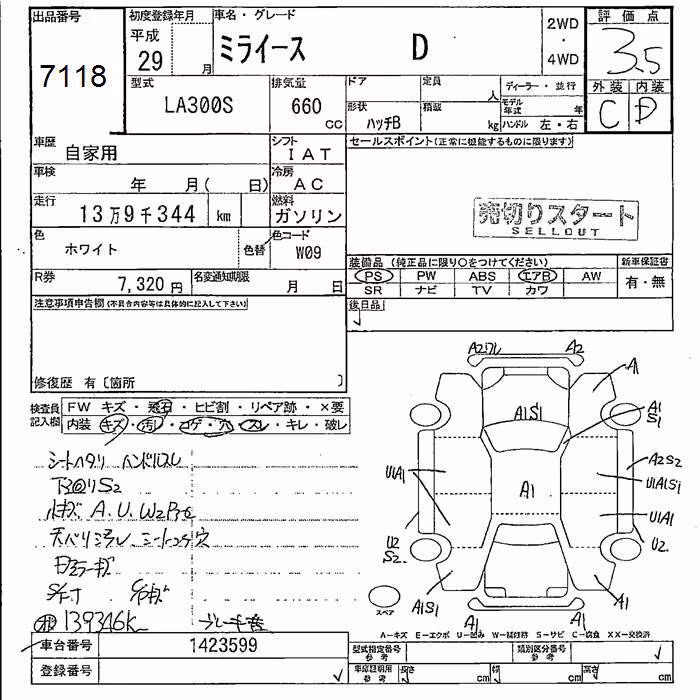 出品番号
7118
初度登録年月
平成
29 月
車名・グレード
ミライース D
2WD
・
4WD
評価点
3.5
外装 内装
C D
型式
LA300S
排気量
660 cc
ドア
形状
ハッチB
定員
人
積載
kg
ディーラー・並行
モデル年式 年
ハンドル 左・右
車歴
自家用
シフト
IAT
セールスポイント(正常に機能するものに限ります)
車検
年 月( 日)
冷房
AC
走行
13万9千344 km
燃料
ガソリン
売切りスタート
SELLOUT
色
ホワイト
色替
色コード
W09
R券
7,320 円
名変通知期限
月 日
装備品 (純正品に限り○をつけてください)
新車保証書
PS PW ABS エアB AW
有・無
SR ナビ TV カワ
後日品
注意事項申告欄(不具合内容等は具体的に記入して下さい)
修復歴 有〔箇所 〕
検査員記入欄
FW キズ・飛石・ヒビ割・リペア跡・×要
内装 キズ・汚レ・コゲ・穴・スレ・キレ・破レ
シートヘタリ ハンドルスレ
S2
A.U.W2
139346K
A2 A2
A1
A1S1
A1
S1
A2S2
U1A1
A1
U1A1S1
U1A1
U2
S2
U2
A1S1
A1
A1
A1
スペア
A-キズ E-エクボ U-凹み W-補修跡 S-サビ C-腐食 XX-交換済
車台番号
1423599
登録番号
型式指定番号
参考
類別区分番号
参考
車庫証明用
参考
長さ cm
幅 cm
高さ cm